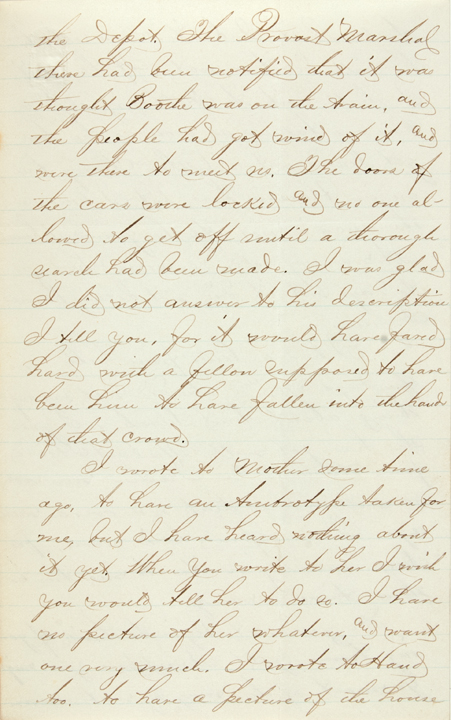 the Depot. The Provost Marshal
there had been notified that it was
thought Boothe was on the train, and
the people had got wind of it, and
were there to meet us. The doors of
the cars were locked and no one al-
lowed to get off until a thorough
search had been made. I was glad
I did not answer to his description
I tell you, for it would have fared
hard with a fellow supposed to have
been him to have fallen into the hands
of that crowd.
I wrote to Mother some time
ago, to have an Ambrotype taken for
me, but I have heard nothing about
it yet. When you write to her I wish
you would tell her to do so. I have
no picture of her whatever, and want
one very much. I wrote to Hand
too. to have a picture of the house